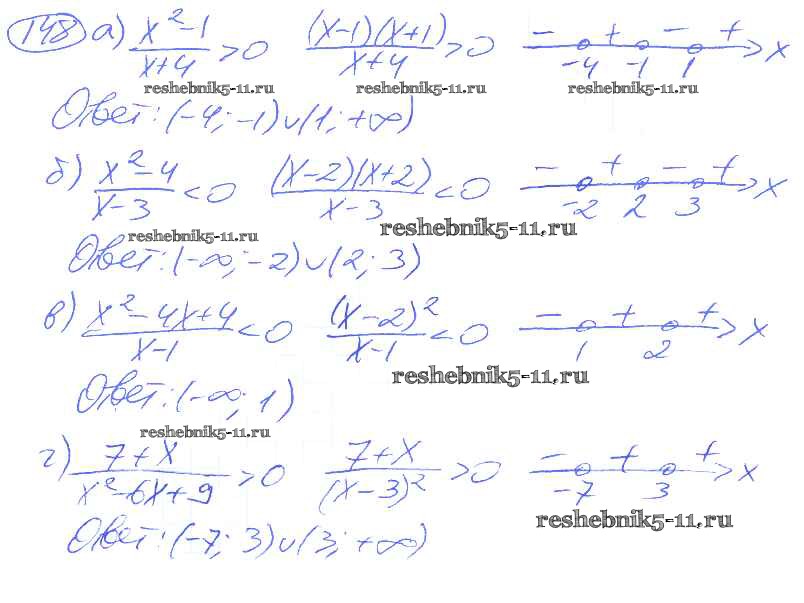 148 а) (x²-1)/(x+4) > 0 ((x-1)(x+1))/(x+4) > 0 - + - + x
-4 -1 1
reshebnik5-11.ru reshebnik5-11.ru reshebnik5-11.ru
Ответ: (-4; -1)∪(1; +∞)
б) (x²-4)/(x-3) < 0 ((x-2)(x+2))/(x-3) < 0 - + - + x
-2 2 3
reshebnik5-11.ru reshebnik5-11.ru
Ответ: (-∞; -2)∪(2; 3)
в) (x²-4x+4)/(x-1) < 0 (x-2)²/(x-1) < 0 - + + x
1 2
reshebnik5-11.ru
Ответ: (-∞; 1)
reshebnik5-11.ru
г) (7+x)/(x²-6x+9) > 0 (7+x)/(x-3)² > 0 - + + x
-7 3
reshebnik5-11.ru
Ответ: (-7; 3)∪(3; +∞)